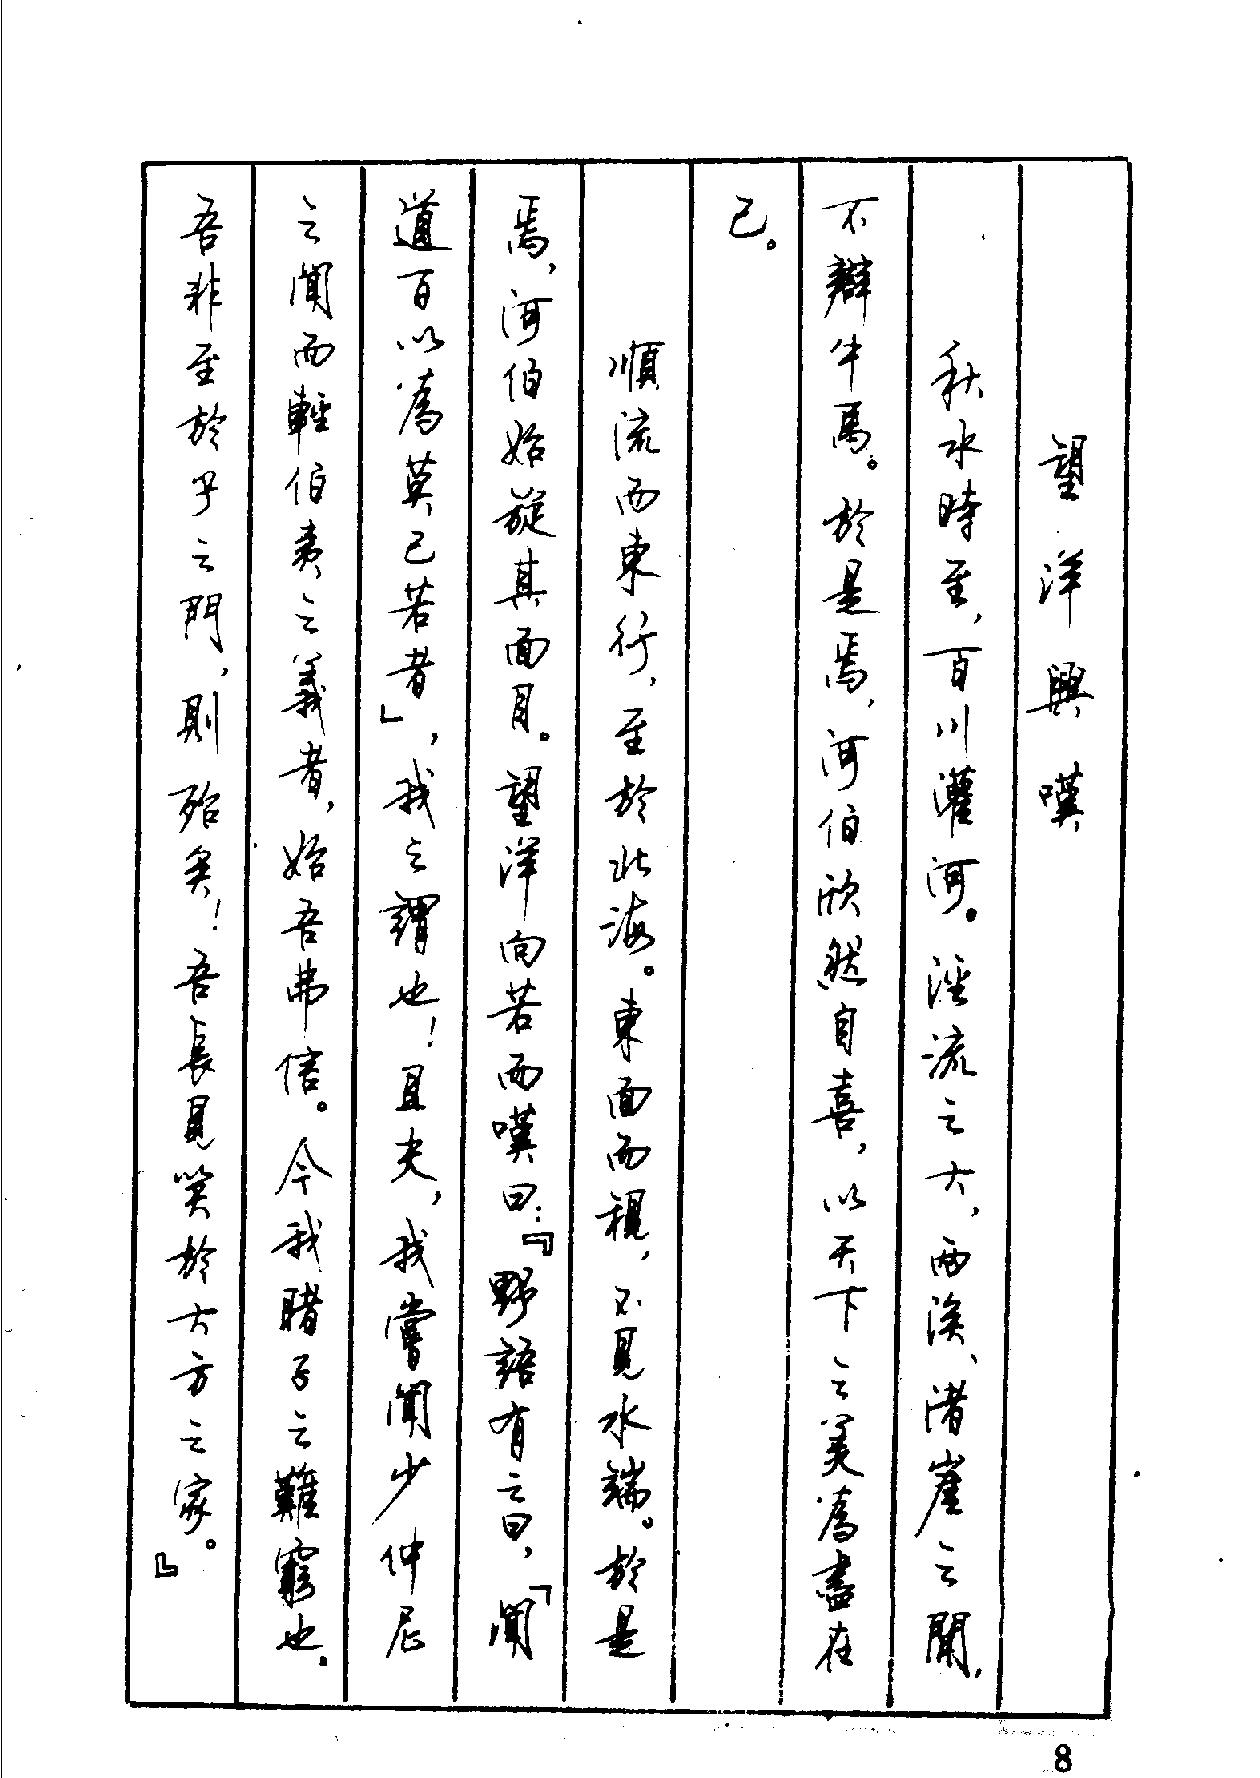 望洋興嘆
秋水時至，百川灌河。涇流之大，兩涘、渚崖之間，
不辯牛馬。於是焉，河伯欣然自喜，以天下之美為盡在
己。
順流而東行，至於北海。東面而視，不見水端。於是
焉，河伯始旋其面目。望洋向若而嘆曰：『野語有之曰，「聞
道百以為莫己若者」，我之謂也！且夫，我嘗聞少仲尼
之聞而輕伯夷之義者，始吾弗信。今我睹子之難窮也。
吾非至於子之門，則殆矣！吾長見笑於大方之家。』
8